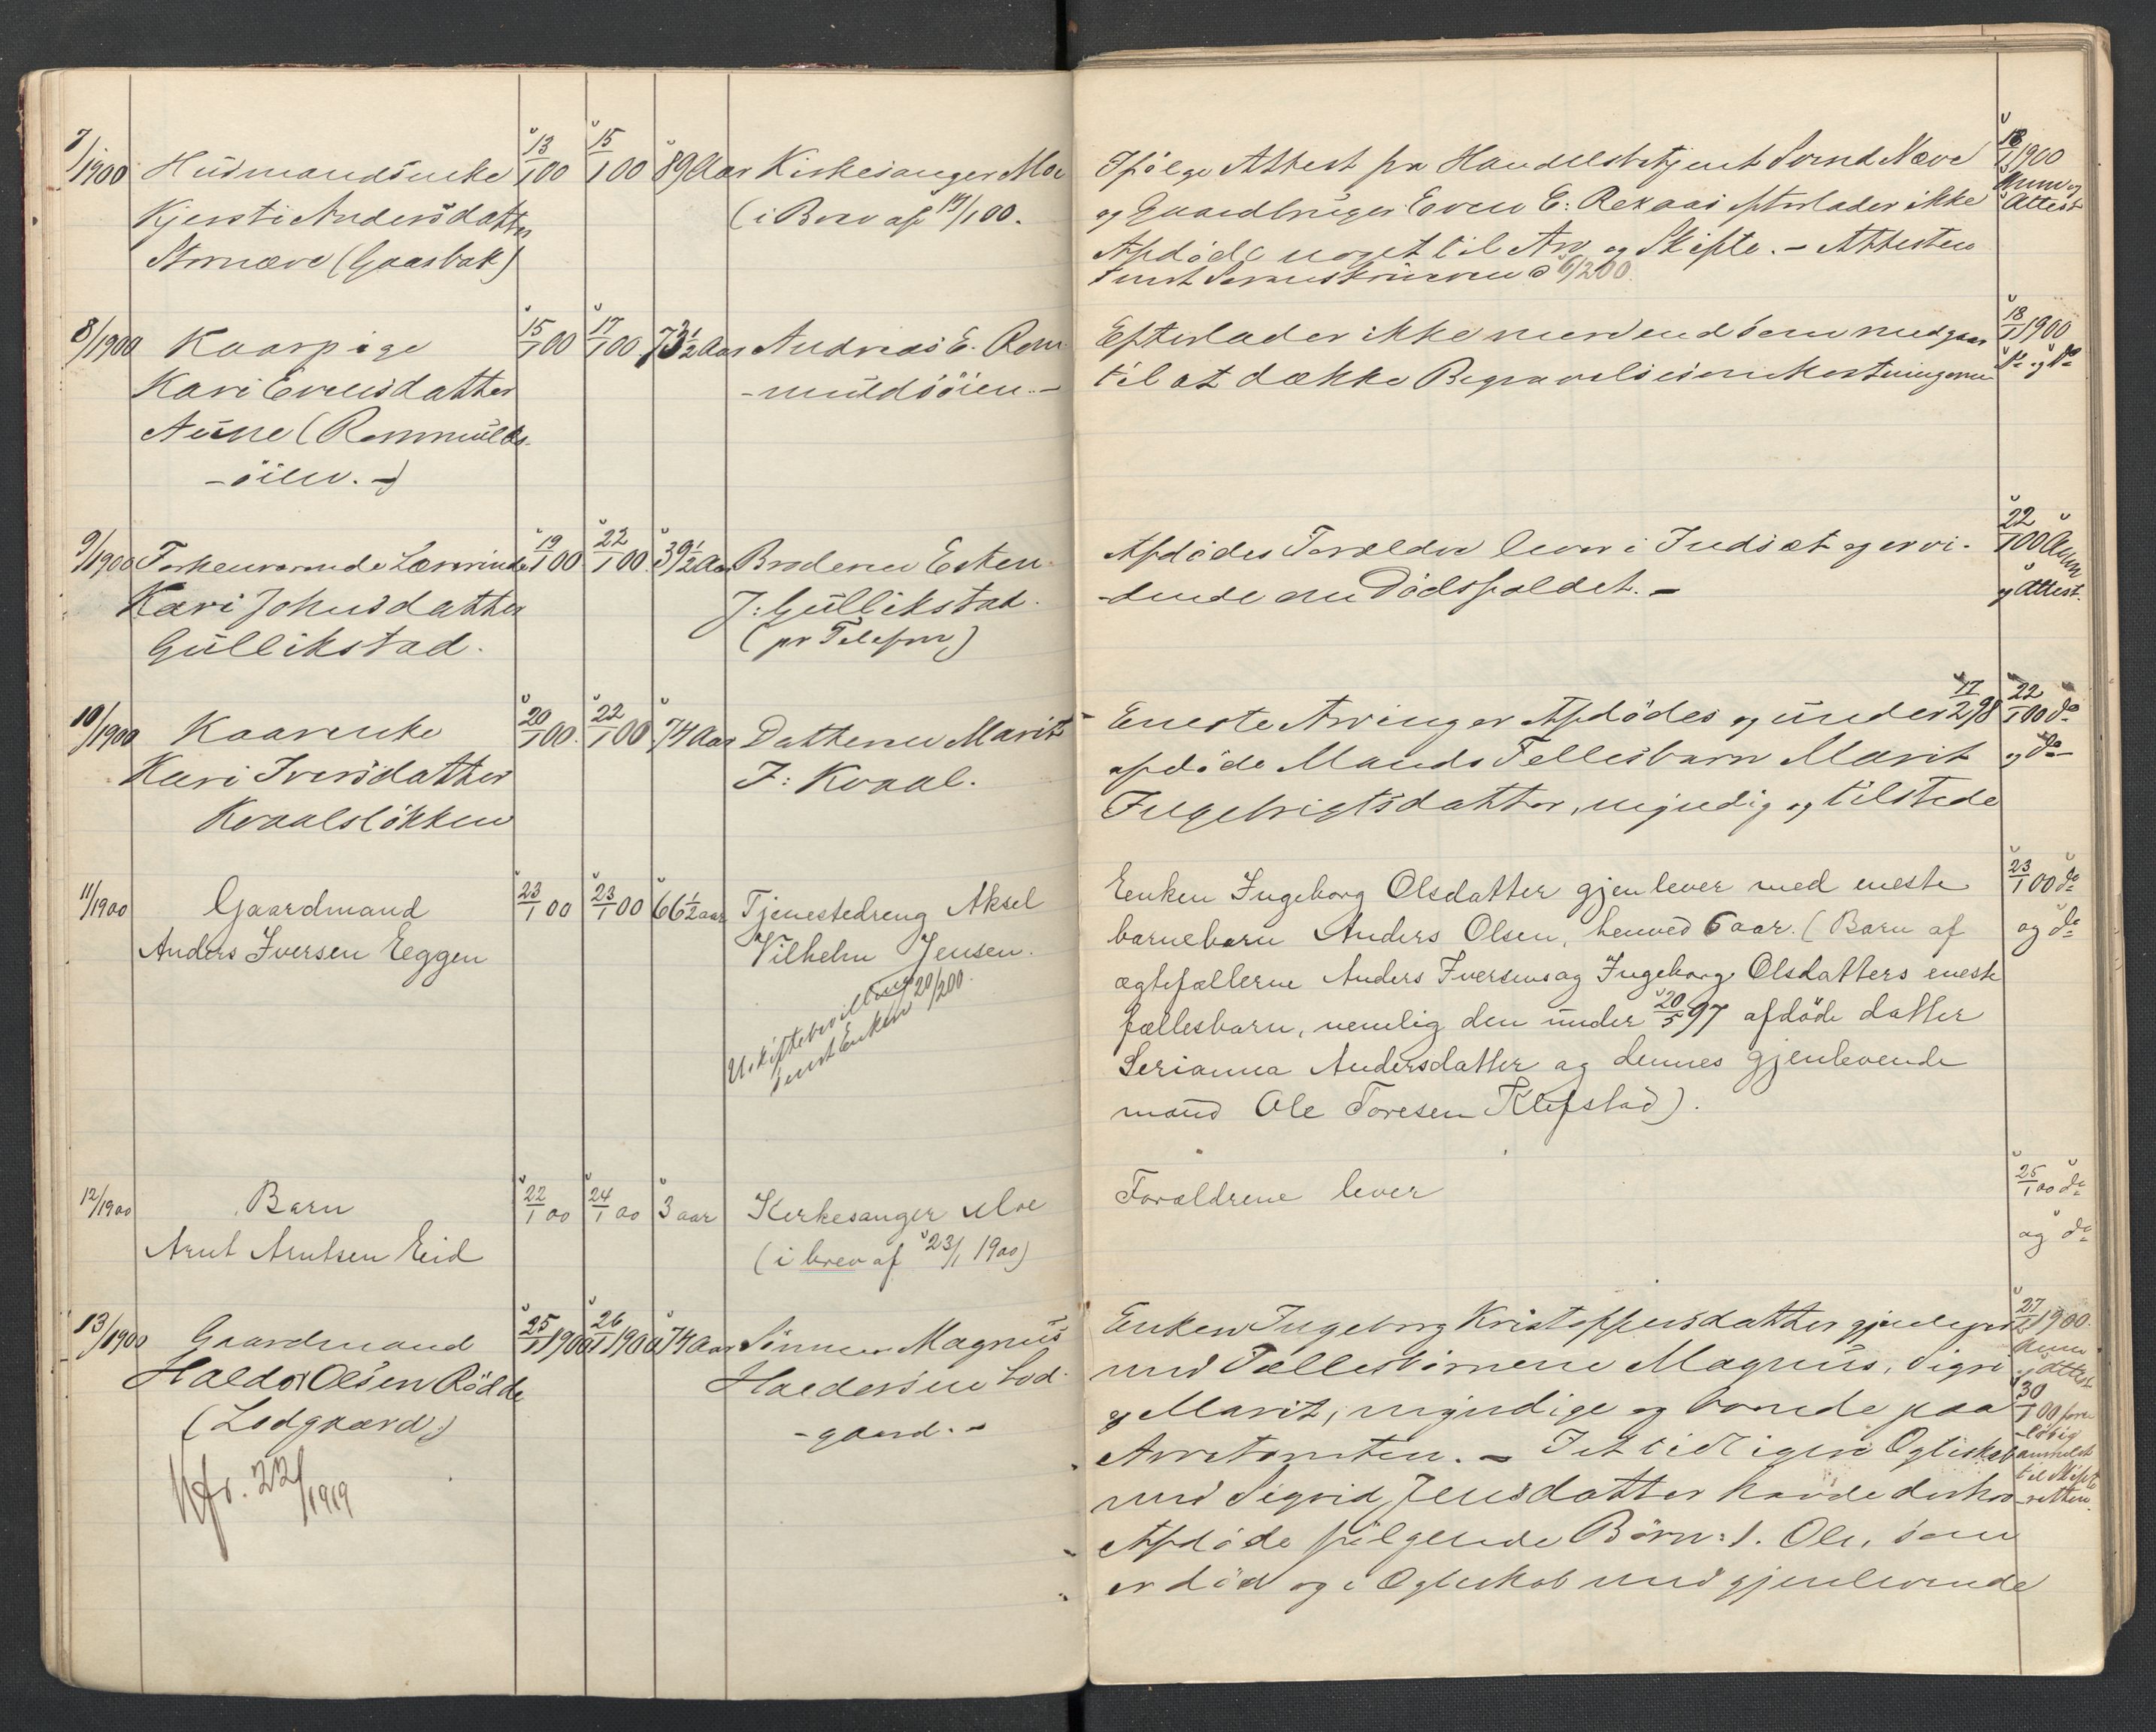 7/1900 Husmandsenke 13/1 00 15/1 00 89 Aar Kirkesanger Moe
Kjersti Andersdatter (i Brev af 14/1 00.
Stornæve (Gaasbak)
8/1900 Kaarpige 15/1 00 17/1 00 73½ Aar Andreas E. Rom-
Kari Evensdatter -muldsöien.-
Aune (Rommulds-
-öien.-)
9/1900 Forhenværende Lærerinde 19/1 00 22/1 00 39½ Aar Broderen Esten
Kari Johnsdatter J: Gullikstad.
Gullikstad. (pr Telefon)
10/1900 Kaarenke 20/1 00. 22/1 00 74 Aar Datteren Marit
Kari Iversdatter I: Kvaal.
Kvaalslökken
11/1900 Gaardmand 23/1 00 23/1 00 66½ aar Tjenestedreng Aksel
Anders Iversen Eggen Vilhelm Jensen.
Uskiftebevilling
Enken 20/2 00.
12/1900 Barn 22/1 00 24/1 00 3 aar Kirkesanger Moe
Arnt Arntsen Eid (i brev af 23/1 1900)
13/1900 Gaardmand 25/1 1900 26/1 1900 74 Aar Sönnen Magnus
Haldor Olsen Rödde Haldorsen Lod-
(Lodgaard) -gaard.-
Kfr. 22/1919
Ifölge Attest fra Handelsbetjent Svend Næve 18/1 1900
og Gaardbruger Even E: Rexaas efterlader ikke Anm og
Afdöde noget til Arv og Skifte. - Attesten Attest
Sorenskriveren 6/2 00.
Efterlader ikke mere end som medgaar 18/1 1900
til at dække Begravelsesomkostningerne do og do
Afdödes Forældre lever i Indset og er vi- 22/1 00 Anm
-dende om Dödsfaldet.- og Attest.
Eneste Arving er Afdödes og under 17/2 98 22/1 00 do
afdöde Mands Fellesbarn Marit og do
Ingebrigtsdatter, myndig og tilstede
Enken Ingeborg Olsdatter gjenlever med eneste 23/1 00 do
barnebarn Anders Olsen, henved 6 aar. (Barn af og do
ægtefællerne Anders Iversens og Ingeborg Olsdatters eneste
fællesbarn, nemlig den under 20/5 97 afdöde datter
Serianna Andersdatter og dennes gjenlevende
mand Ole Toresen Klefstad).
Forældrene lever 25/1 00 do
og do
Enken Ingeborg Kristoffersdatter gjenlever 27/1 1900.
med Fællesbörnene Magnus, Sigri Anm og Attest
og Marit, myndige og boende paa 30/1 00 fore-
Arvetomten. - I et tidligere Ægteskab -löbig anmeldt
med Sigrid Jensdatter havde derhos til Skifte-
Afdöde fölgende Börn: 1. Ole, som -retten.
er död og i Ægteskab med gjenlevende